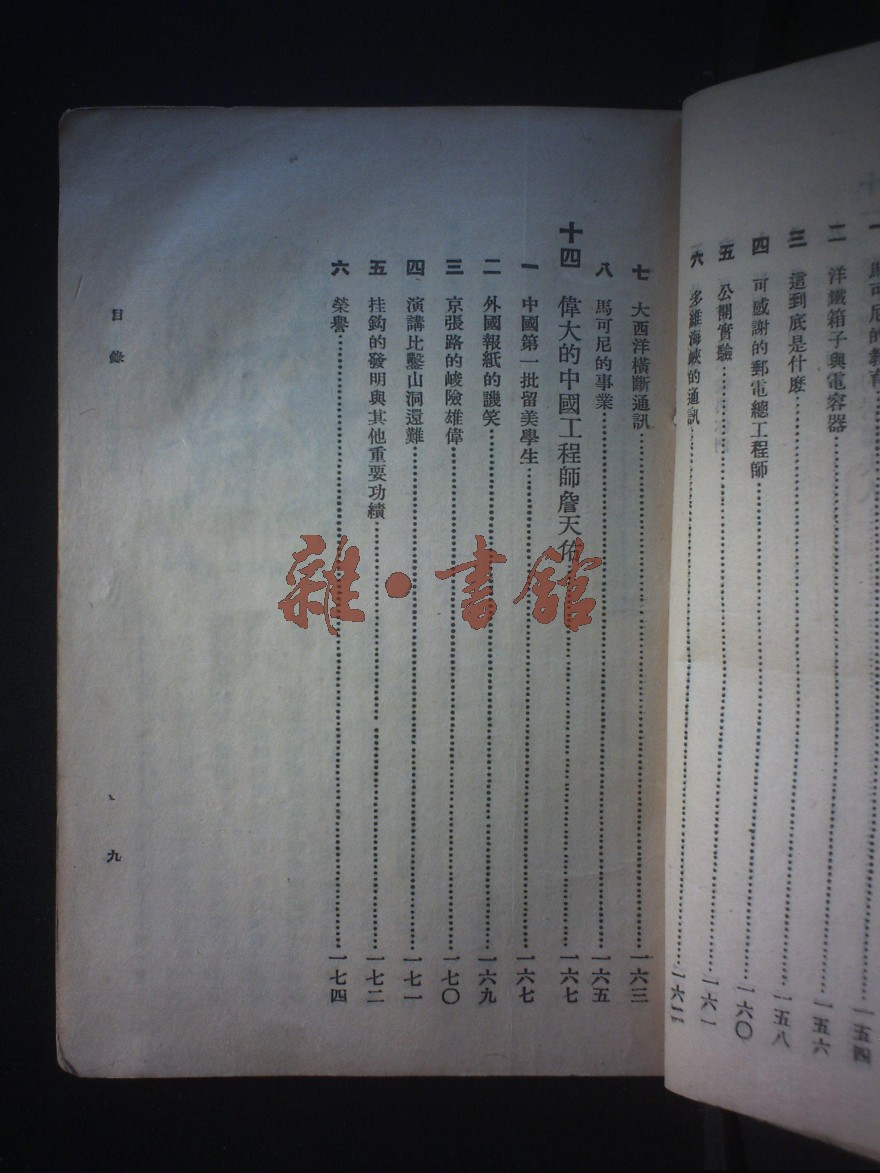 一 馬可尼的教育……一五四
二 洋鐵箱子與電容器……一五六
三 這到底是什麽……一五八
四 可感謝的郵電總工程師……一六〇
五 公開實驗……一六一
六 多維海峽的通訊……一六二
七 大西洋橫斷通訊……一六三
八 馬可尼的事業……一六五
十四 偉大的中國工程師詹天佑……一六七
一 中國第一批留美學生……一六七
二 外國報紙的譏笑……一六九
三 京張路的峻險雄偉……一七〇
四 演講比鑿山洞還難……一七一
五 挂鈎的發明與其他重要功績……一七二
六 榮譽……一七四
目錄
九
雜·書館